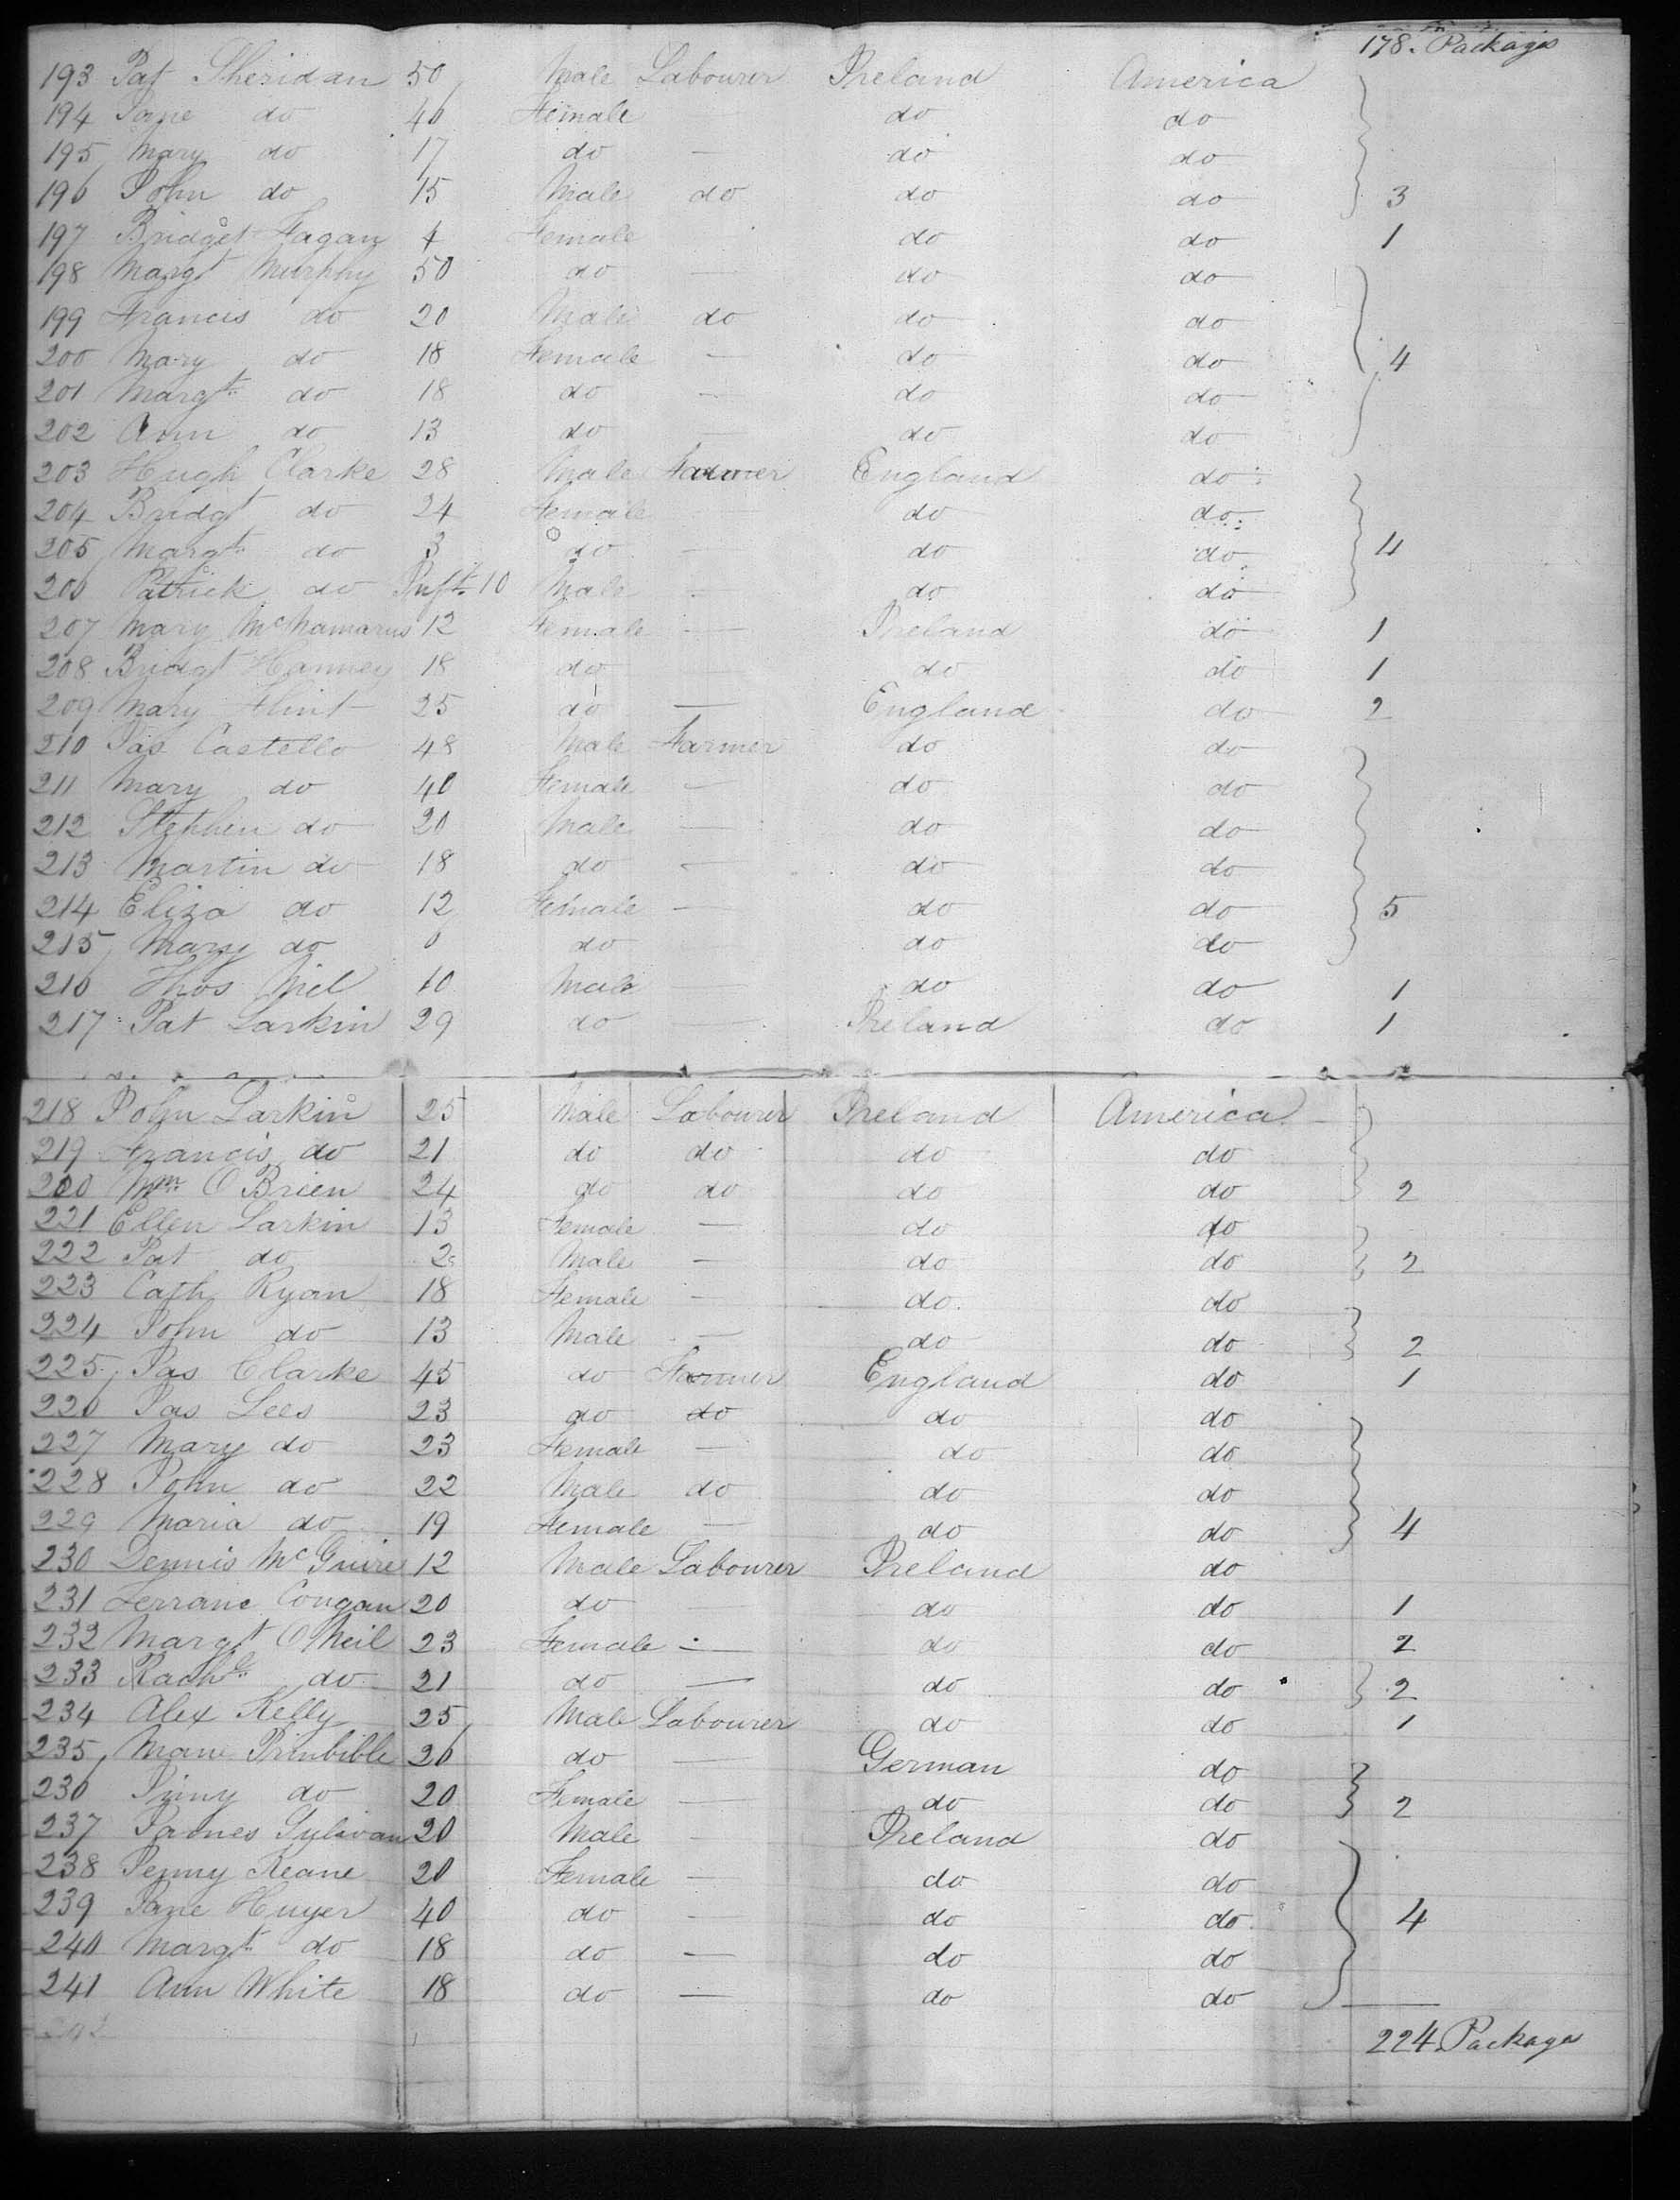 178. Packages
193 Pat Sheridan 50 Male Labourer Ireland America
194 Jane do 46 Female do do
195 Mary do 17 do — do do
196 John do 15 Male do do do 3
197 Bridget Fagan 4 Female do do 1
198 Margt Murphy 50 do — do do
199 Francis do 20 Male do do do
200 Mary do 18 Female — do do 4
201 Margt do 18 do — do do
202 Ann do 13 do — do do
203 Hugh Clarke 28 Male Farmer England do
204 Bridgt do 24 Female — do do
205 Margt do 3 do — do do 4
206 Patrick do Inft 10 Male — do do
207 Mary McNamarus 12 Female — Ireland do 1
208 Bridgt Hanney 18 do — do do 1
209 Mary Flint 25 do — England do 2
210 Jas Castello 48 Male Farmer do do
211 Mary do 40 Female — do do
212 Stephen do 20 Male — do do
213 Martin do 18 do — do do
214 Eliza do 12 Female — do do 5
215 Mary do 6 do do do
216 Thos Niel 10 Male — do do 1
217 Pat Larkin 29 do — Ireland do 1
218 John Larkin 25 Male Labourer Ireland America
219 Francis do 21 do do do do
220 Wm O Brien 24 do do do do 2
221 Ellen Larkin 13 Female — do do
222 Pat do Male — do do 2
223 Cath Ryan 18 Female — do do
224 John do 13 Male — do do 2
225 Jas Clarke 45 do Farmer England do 1
226 Jas Lees 23 do do do do
227 Mary do 23 Female — do do
228 John do 22 Male do do do
229 Maria do 19 Female — do do 4
230 Dennis McGuire 12 Male Labourer Ireland do
231 Terranc Congan 20 do — do do 1
232 Margt O Neil 23 Female — do do 2
233 Rachl do 21 do — do do 2
234 Alex Kelly 25 Male Labourer do do 1
235 26 do — German do
236 do 20 Female — do do 2
237 James Sylivan 20 Male — Ireland do
238 Jenny Keane 20 Female — do do
239 Jane Huyer 40 do — do do 4
240 Margt do 18 do — do do
241 Ann White 18 do — do do
224 Packages